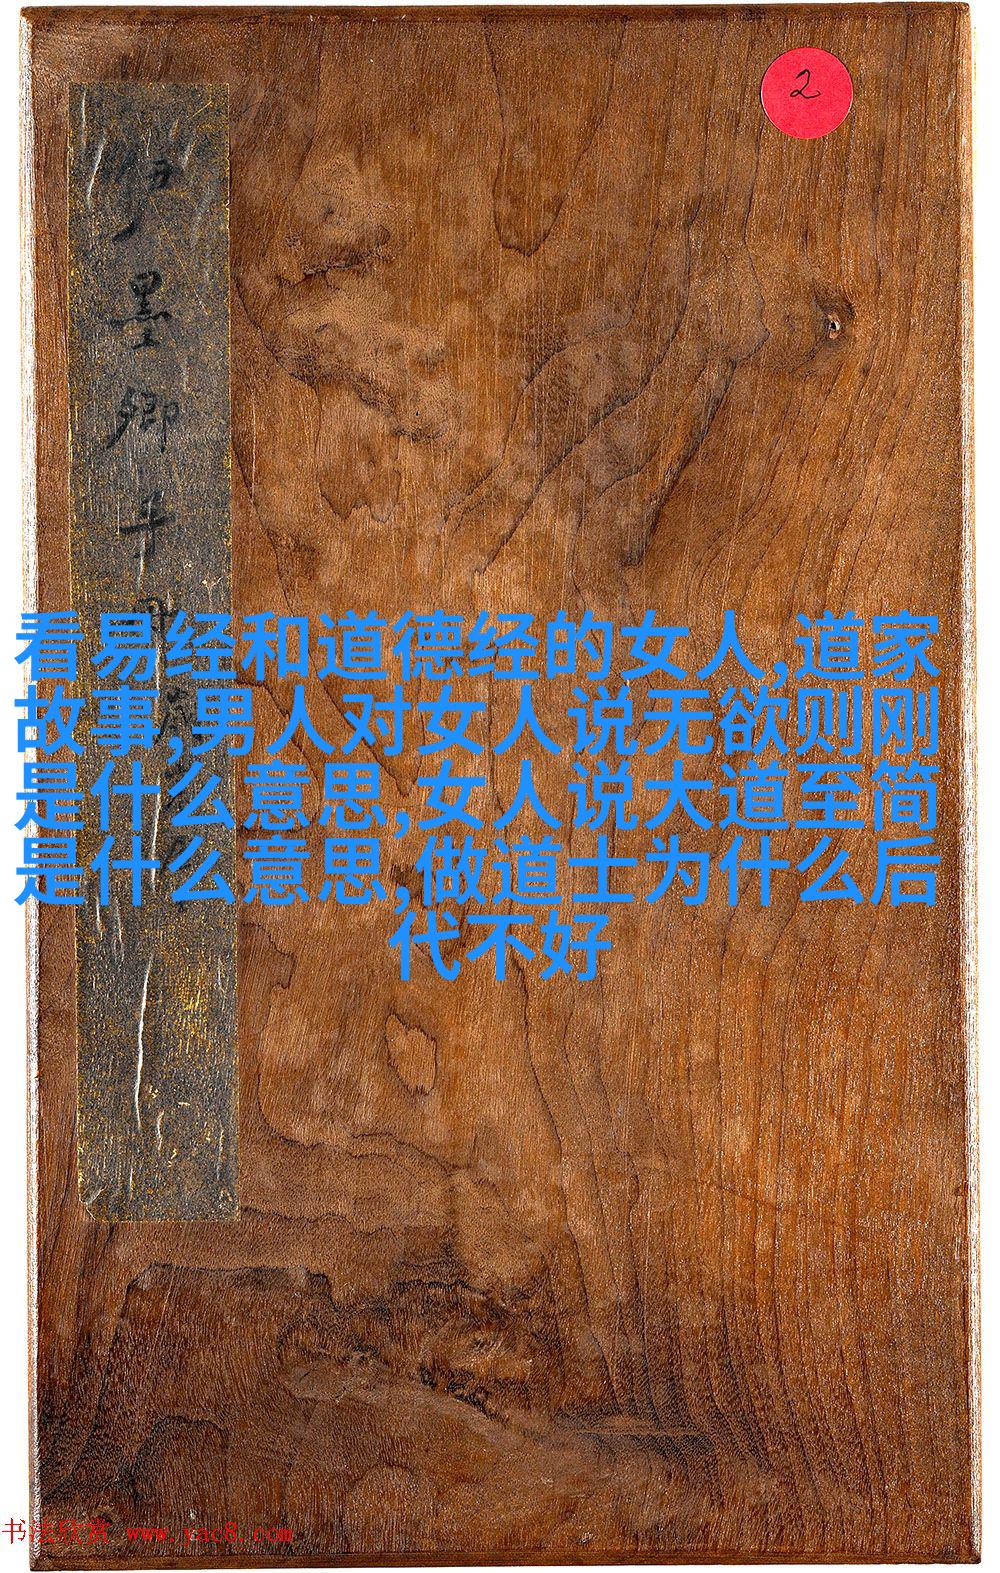 2
墨卿手
看易经和道德经的女人,道家
故事,男人对女人说无欲则刚
是什么意思,女人说大道至简
是什么意思,做道士为什么后
代不好
书法欣赏 www.yac8.com